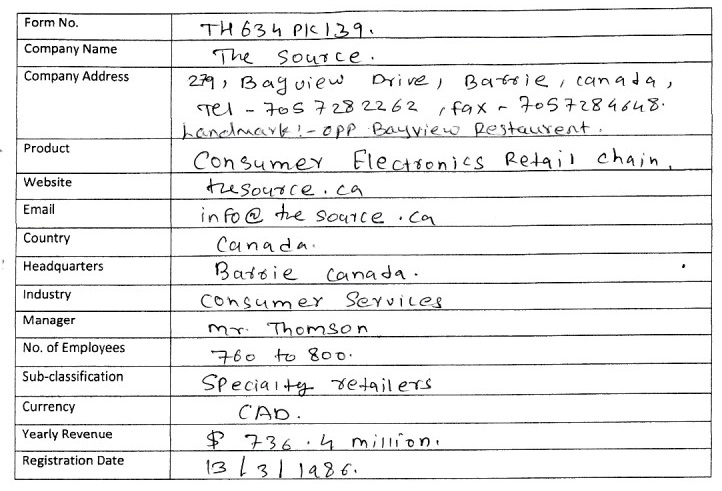 Form No. TH634PK139.
Company Name The Source.
Company Address 279, Bayview Drive, Barrie, Canada,
Tel - 705 728 2262, fax - 705 728 4648.
Landmark :- opp Bayview Restaurent.
Product Consumer Electronics Retail chain.
Website thesource.ca
Email info@thesource.ca
Country Canada.
Headquarters Barrie Canada.
Industry Consumer Services
Manager Mr. Thomson
No. of Employees 760 to 800.
Sub-classification Specialty retailers
Currency CAD.
Yearly Revenue $ 736.4 million.
Registration Date 13/3/1986.